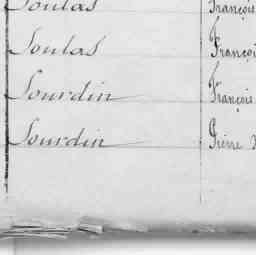 Soulas François
Soulas Françoi
Sourdin François
Sourdin Pierre